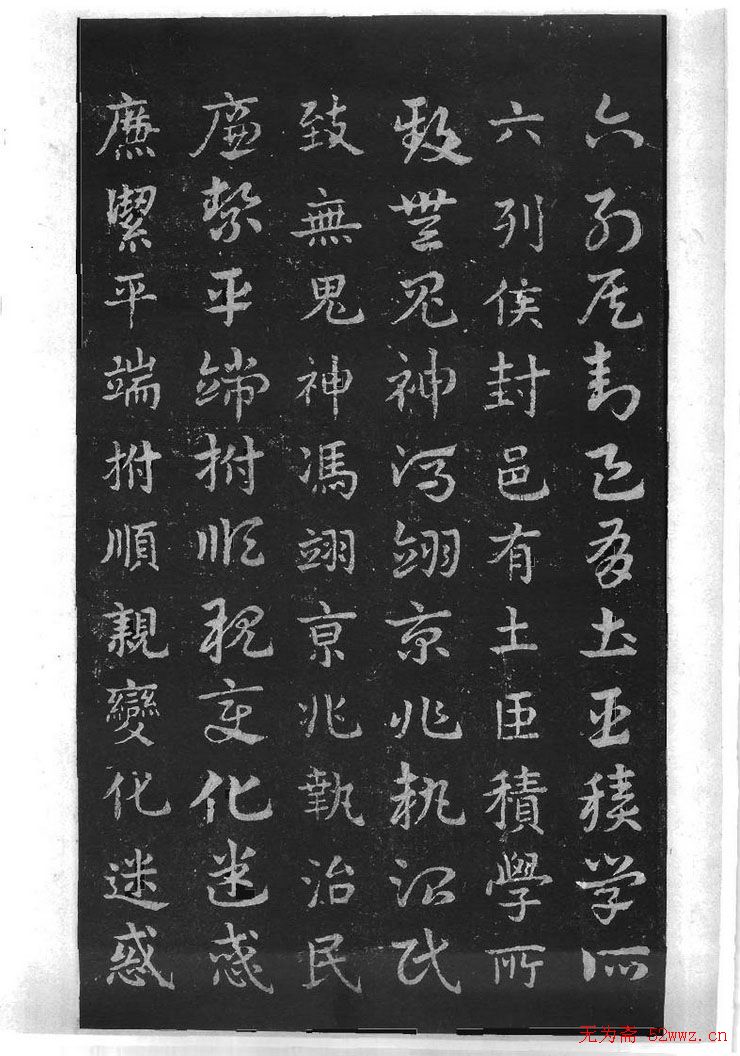 六列侯封邑有土臣積學所
六列侯封邑有土臣積學所
致無鬼神馮翊京兆執治民
致無鬼神馮翊京兆執治民
廉絜平端拊順親變化迷惑
廉潔平端拊順親變化迷惑
无为斋 52wwz.cn